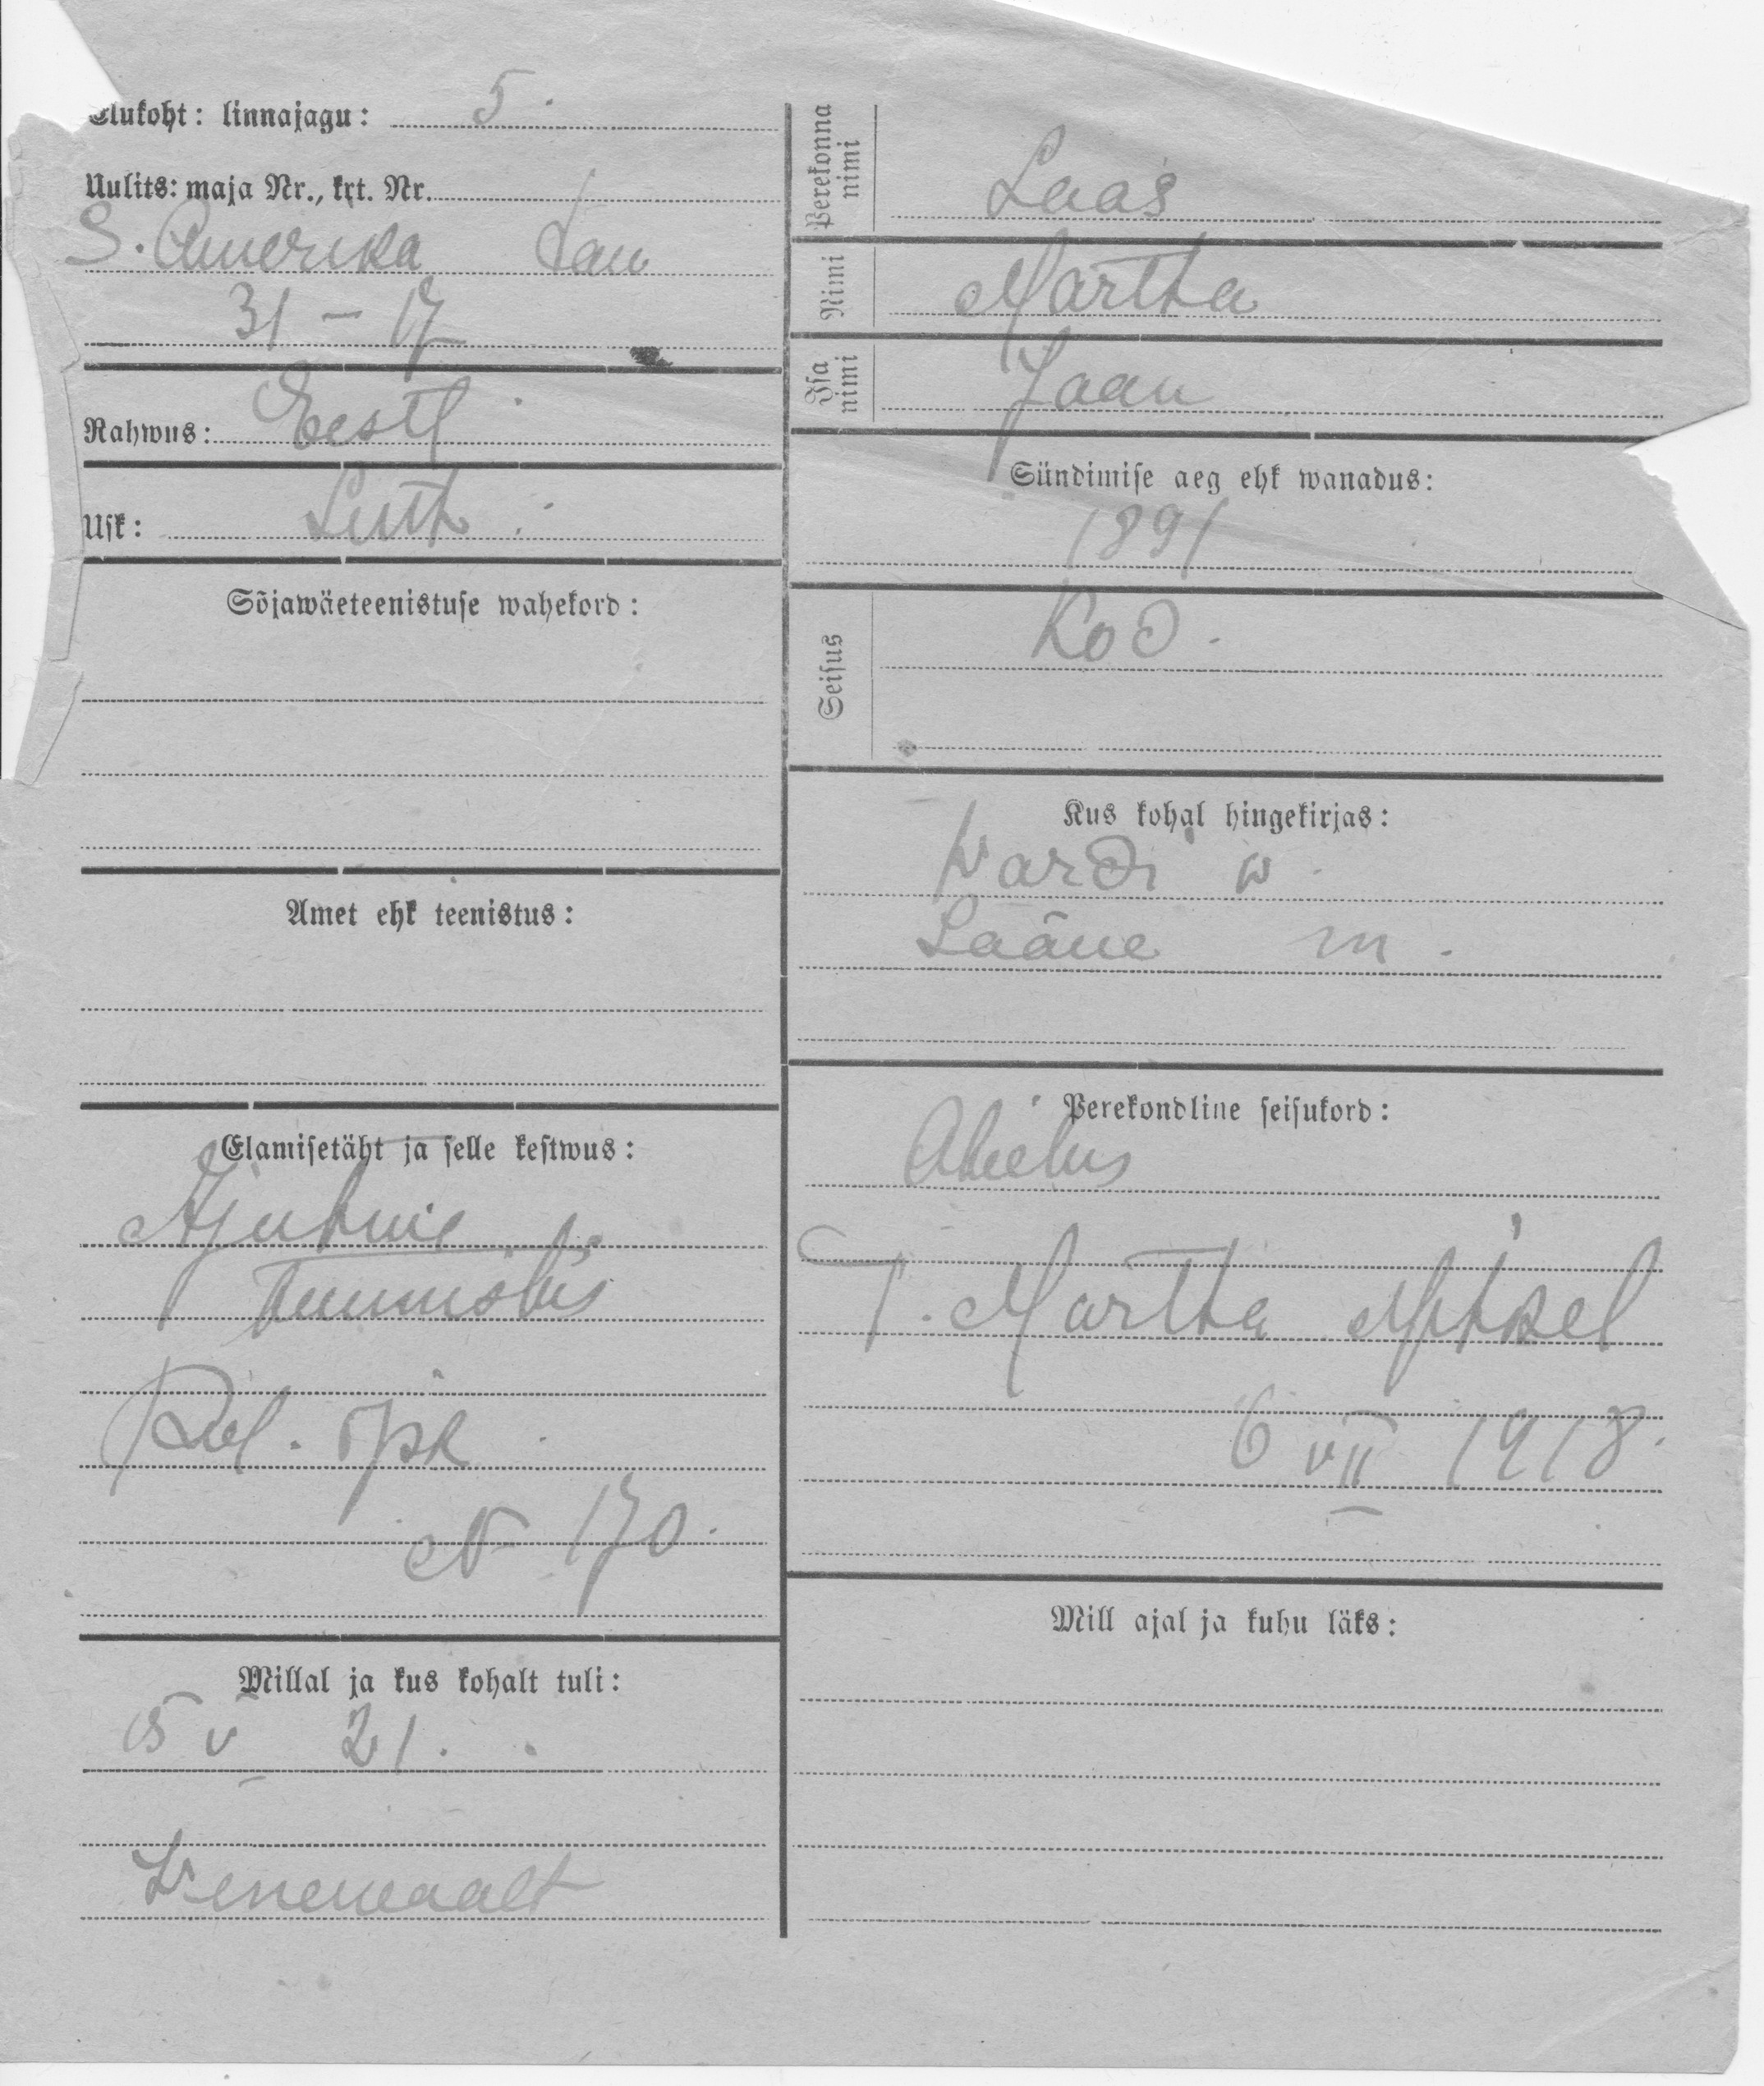 Elukoht: linnajagu: 5.
Uulits: maja Nr., krt. Nr.
S. Amerika tän
31 – 17
Rahwus: Eestl.
Usk: Luth.
Sõjawäeteenistuse wahekord:
Amet ehk teenistus:
Elamisetäht ja selle kestwus:
Ajutine
tunnistus
Rewl. opk
N 170.
Millal ja kus kohalt tuli:
5 V 21.
Wenemaalt
Perekonna nimi Laas
Nimi Martha
Isa nimi Jaan
Sündimise aeg ehk wanadus:
1891
Seisus Kod.
Kus kohal hingekirjas:
Wardi w.
Lääne m.
Perekondline seisukord:
Abielus
T. Martha
6 VII 1918.
Mill ajal ja kuhu läks: